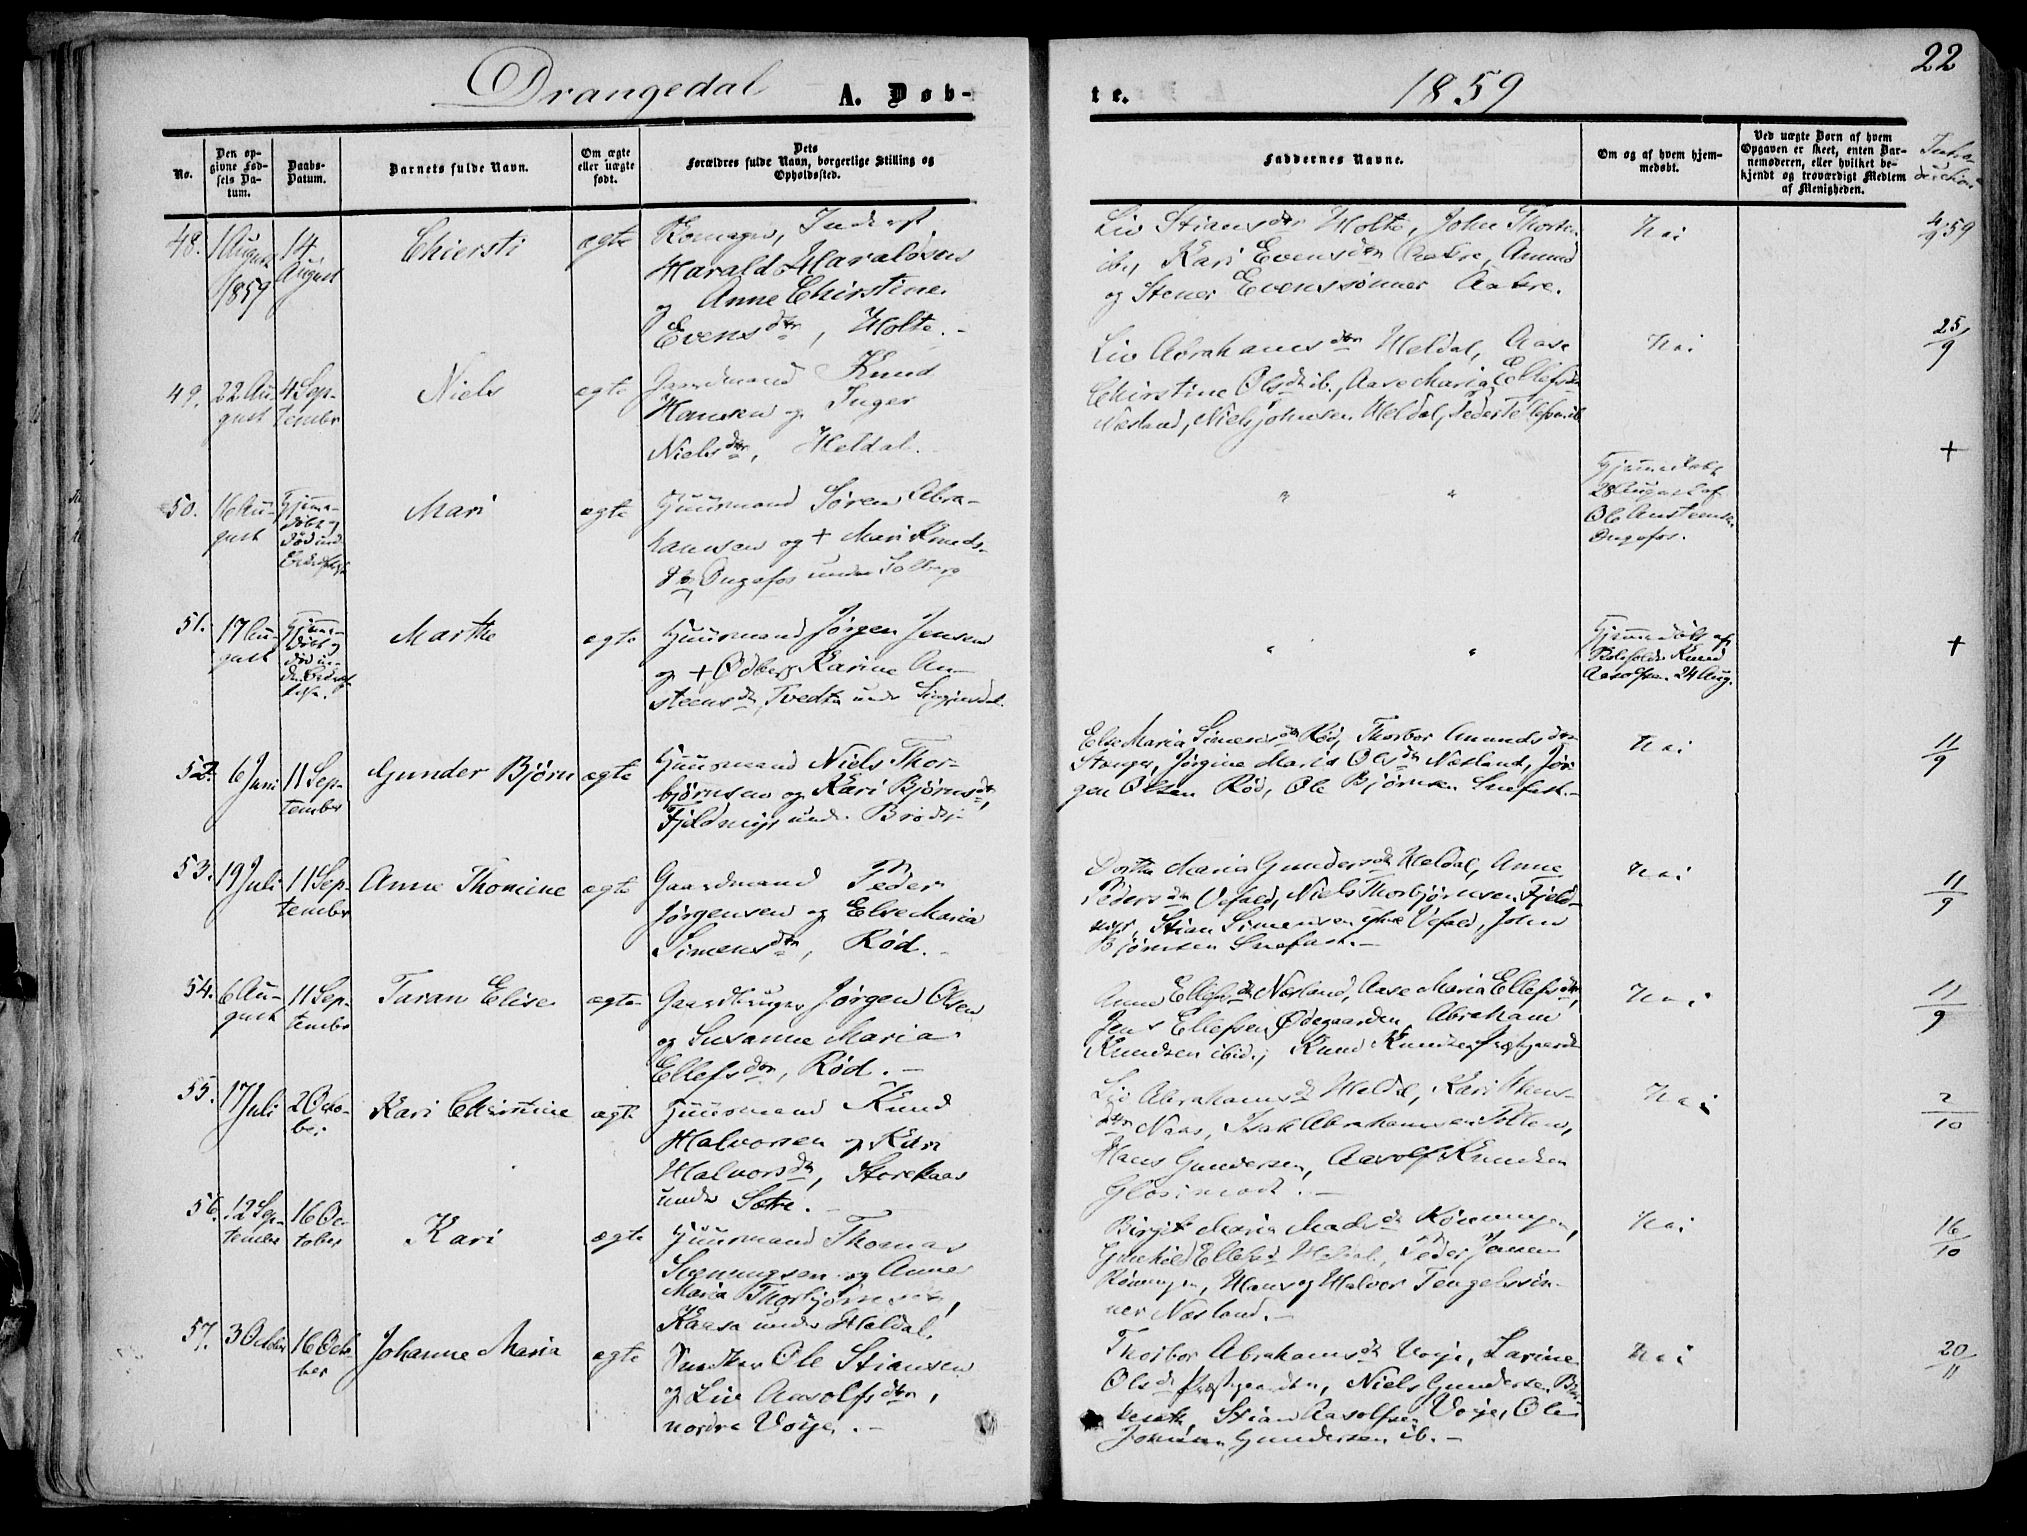 22
Drangedal A. Døb-
te. 1859
No.
Den op-
givne Fød-
sels Da-
tum.
Daabs-
Datum.
Barnets fulde Navn.
Om ægte
eller uægte
født.
Dets
Forældres fulde Navn, borgerlige Stilling og
Opholdssted.
Faddernes Navne.
Om og af hvem hjem-
medøbt.
Ved uægte Børn af hvem
Opgaven er skeet, enten Bar-
nemoderen, eller hvilket be-
kjendt og troværdigt Medlem
af Menigheden.
48.
1 August
1859
14
August
Chiersti
ægte
Harald Haraldsen
og Anne Chirstine
Evensdtr, Holte.-
Liv Stiansdtr Holte, John
ib., Kari Evensdtr Aakre, Amund
og Stener Evenssønner Aakre.
Nei
4/9 59
49.
22 Au-
gust
4 Sep-
tember
Niels
ægte
Gaardmand Knud
Hansen og Inger
Nielsdtr, Heldal.
Liv Abrahamsdtr Heldal, Aase
Chirstine Olsdtr ib., Aase Maria Ellefsdtr
Næsland, Niels Johnsen Heldal, Peder Tellefsen ib
Nei
25/9
50.
16 Au-
gust
Hjemme-
døbt og
død ind-
Mari
ægte
Huusmand Søren Abra-
hamsen og + Mari Knuds-
dtr, Ongefos under Solberg
" "
Hjemmedøbt
28 August af
Ole Austensen
Ongefos.
+
51.
17 Au-
gust
Hjemme-
døbt og
død in-
Marthe
ægte
Huusmand Jørgen Jensen
og + Karine Au-
steensdtr, Tvedten under
" "
Hjemmedøbt af
Knud
Aasolfsen 24 Aug.
+
52.
6 Juni
11 Sep-
tember
Gunder Bjørn
ægte
Huusmand Niels Thor-
bjørnsen og Kari Bjørnsdtr,
under
Else Maria Simensdtr Rød, Thorbor Amundsdtr
Stanger, Jørgine Maria Olsdtr Næsland, Jør-
gen Olsen Rød, Ole Bjørnsen
Nei
11/9
53.
19 Juli
11 Sep-
tember
Anne Thomine
ægte
Gaardmand Peder
Jørgensen og Else Maria
Simensdtr, Rød.-
Dorthe Maria Gundersdtr Heldal, Anne
Pedersdtr Vefald, Niels Thorbjørnsen Fjeld-
Stian Simensen Vefald, John
Bjørnsen
Nei
11/9
54.
6 Au-
gust
11 Sep-
tember
Taran Elise
ægte
Gaardbruger Jørgen Olsen
og Susanne Maria
Ellefsdtr, Rød.-
Anne Ellefsdtr Næsland, Aase Maria Ellefsdtr,
Jens Ellefsen Ødegaarden, Abraham
Knudsen ibid., Knud Knudsen Præstgaarden
Nei
11/9
55.
17 Juli
2 Octo-
ber
Kari Chirstine
ægte
Huusmand Knud
Halvorsen og Kari
Halvorsdtr, Storekaas
under
Liv Abrahamsdtr Heldal, Kari
dtr Naas, Isak Abrahamsen
Hans Gundersen, Aasolf Knudsen
Nei
2/10
56.
12 Sep-
tember
16 Oc-
tober
Kari
ægte
Huusmand Thomas
og Anne
Maria Thorbjørnsdtr,
Kaasa under Heldal.
Birgit Maria Madsdtr Rønningen,
Gunhild Ellefsdtr Heldal, Peder Jensen
Rønningen, Hans og Halvor Tengelssøn-
ner Næsland.-
Nei
16/10
57.
3 October
16 Octo-
ber
Johanne Maria
ægte
Ole Stiansen
og Liv Aasolfsdtr,
nordre Voje.-
Thorbor Abrahamsdtr Voje, Karine
Olsdtr Præstgaarden, Niels Gundersen
Stian Aasolfsen Voje, Ole
Gundersen ib.-
Nei
20/11